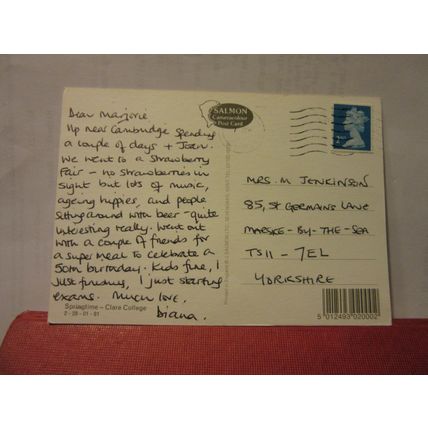 Dear Marjorie
Up near Cambridge spending
a couple of days + Joan.
We went to a Strawberry
Fair - no strawberries in
sight but lots of music,
ageing hippies, and people
sitting around with beer - quite
interesting really. Went out
with a couple of friends for
a super meal to celebrate a
50th birthday. Kids fine, 1
just finishing, 1 just starting
exams. Much love,
Diana.
Springtime – Clare College
2-28-01-01
SALMON
Cameracolour
Post Card
2ND
MRS. M JENKINSON
85, St GERMAINS LANE
MARSKE-BY-THE-SEA
TS11 - 7EL
YORKSHIRE
5 012493 020002